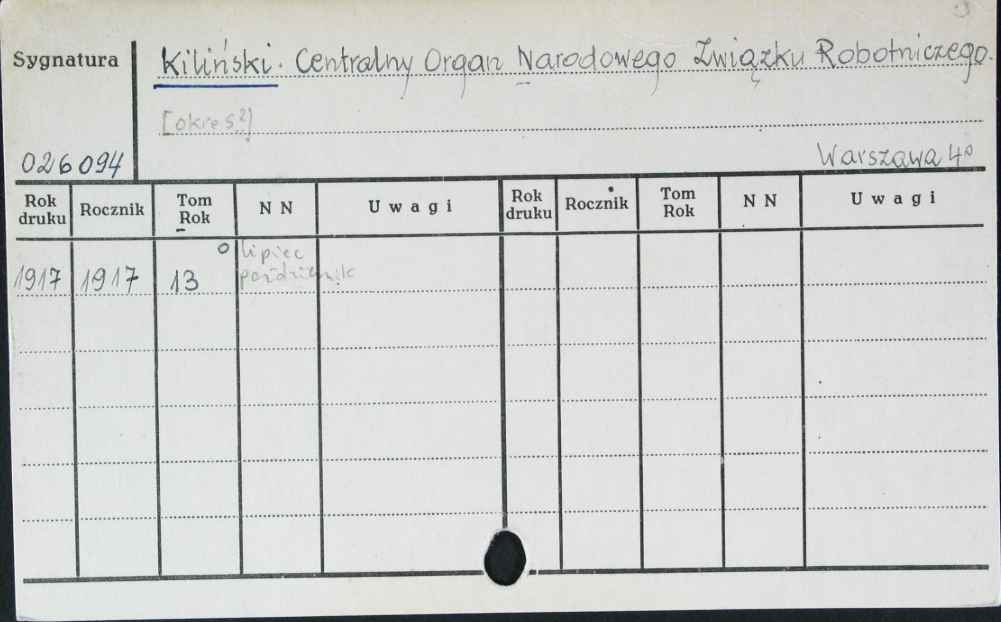 Sygnatura
Kiliński. Centralny Organ Narodowego Związku Robotniczego.
[okres?]
026094
Warszawa 4°
Rok druku Rocznik Tom Rok N N Uwagi Rok druku Rocznik Tom Rok N N Uwagi
lipiec
1917 1917 13 październik